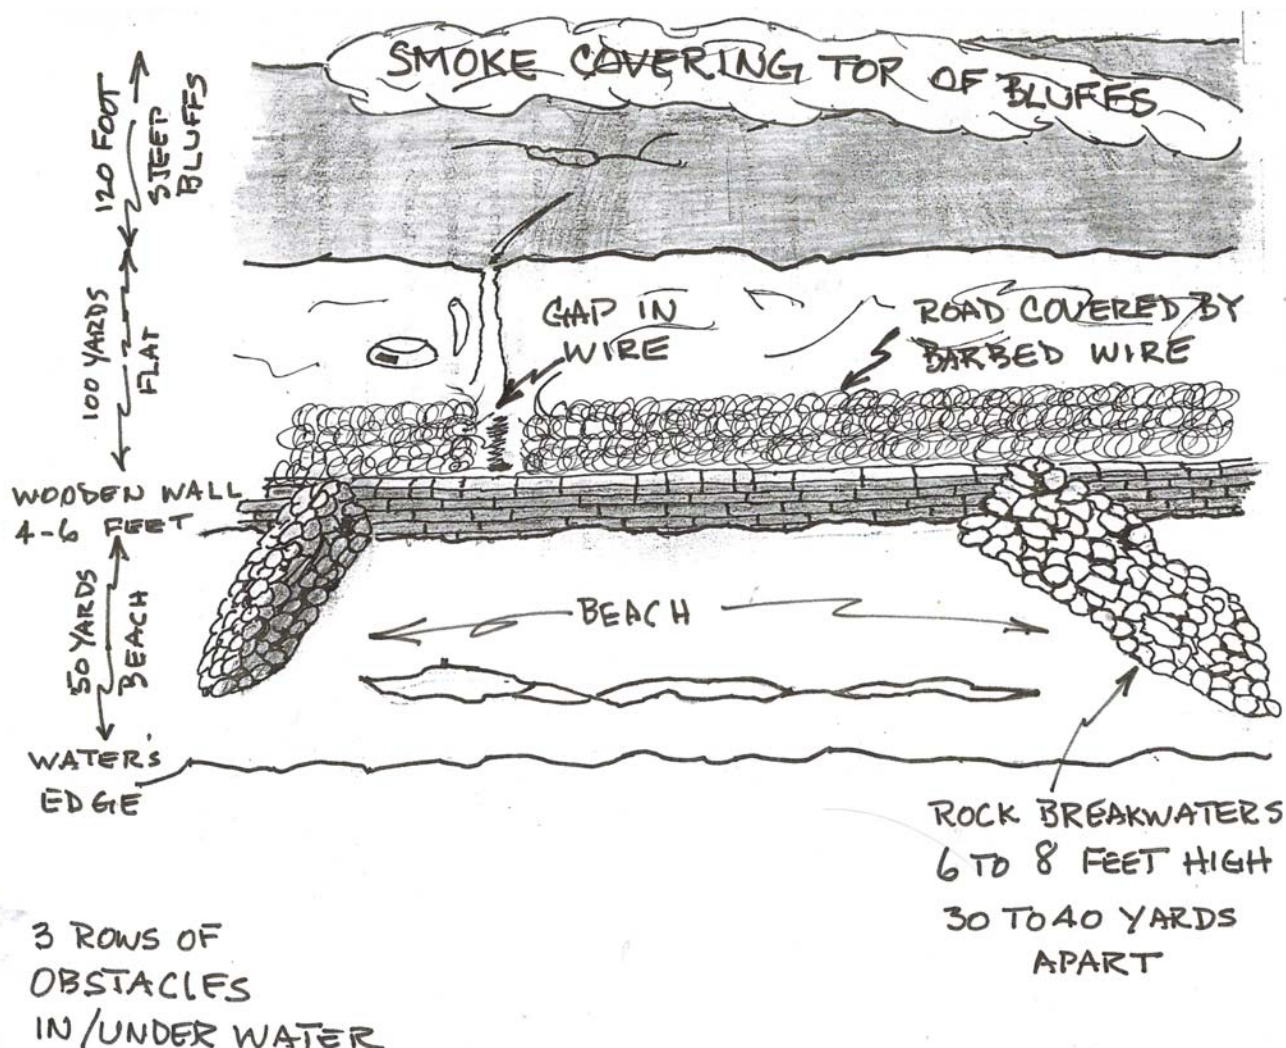 SMOKE COVERING TOP OF BLUFFS
120 FOOT
STEEP
BLUFFS
100 YARDS
FLAT
GAP IN
WIRE
ROAD COVERED BY
BARBED WIRE
WOODEN WALL
4-6 FEET
50 YARDS
BEACH
BEACH
WATER'S
EDGE
ROCK BREAKWATERS
6 TO 8 FEET HIGH
30 TO 40 YARDS
APART
3 ROWS OF
OBSTACLES
IN/UNDER WATER